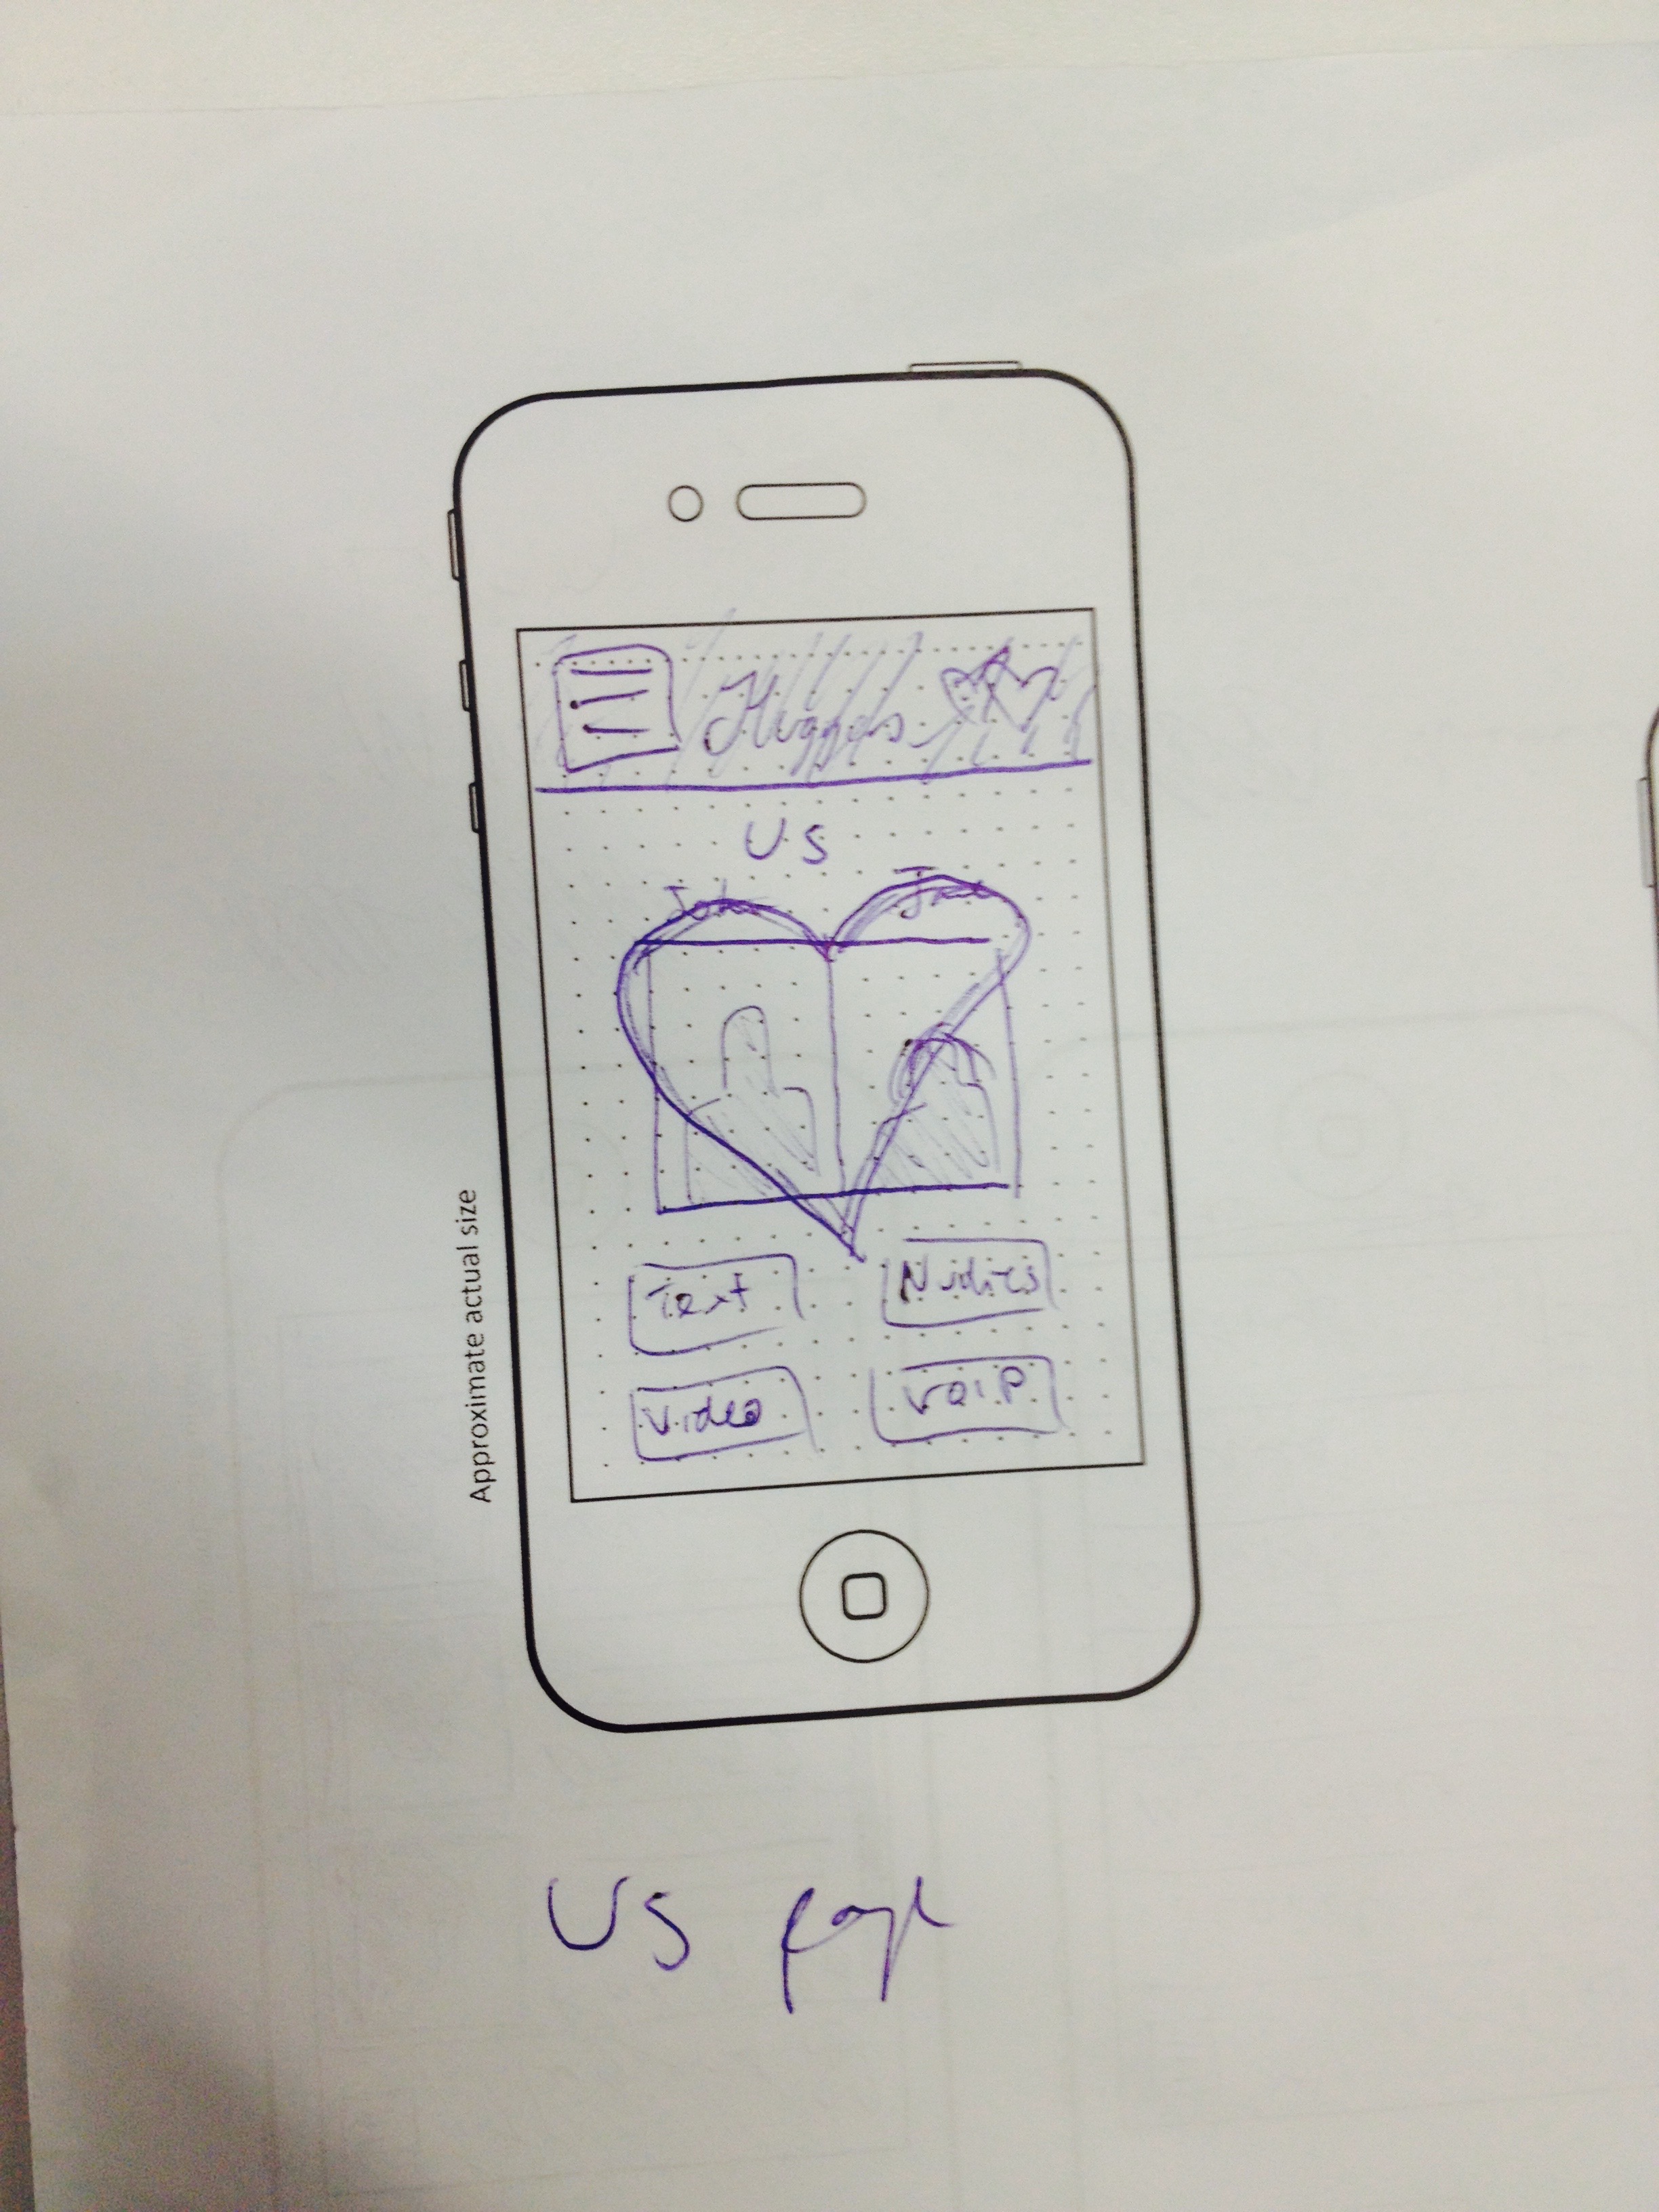 Huggers
US
John Jane
Text Nudies
Video VOIP
Approximate actual size
US page